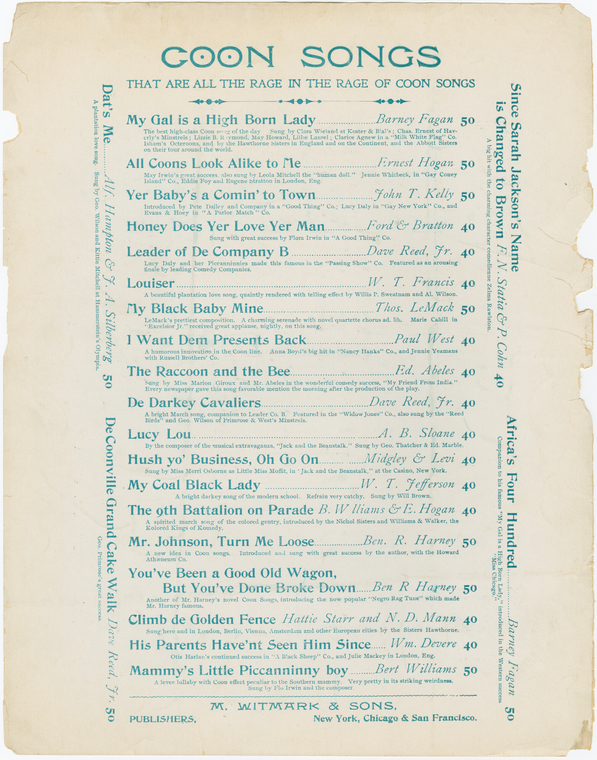 COON SONGS
THAT ARE ALL THE RAGE IN THE RAGE OF COON SONGS
My Gal is a High Born Lady Barney Fagan 50
The best high-class Coon song of the day Sung by Clara Wieland at Koster & Bial's; Chas. Ernest of Hav-
erly's Minstrels; Lizzie B. Raymond, May Howard, Lillie Laurel; Clarice Agnew in a "Milk White Flag" Co.
Isham's Octoroons, and, by the Hawthorne Sisters in England and on the Continent, and the Abbott Sisters
on their tour around the world.
All Coons Look Alike to Me Ernest Hogan 50
May Irwin's great success, also sung by Leola Mitchell the "human doll." Jennie Whitbeck, in "Gay Coney
Island" Co., Eddie Foy and Eugene Stratton in London, Eng.
Yer Baby's a Comin' to Town John T. Kelly 50
Introduced by Pete Dailey and Company in a "Good Thing" Co.; Lucy Daly in "Gay New York" Co., and
Evans & Hoey in "A Parlor Match" Co.
Honey Does Yer Love Yer Man Ford & Bratton 40
Sung with great success by Flora Irwin in "A Good Thing" Co.
Leader of De Company B Dave Reed, Jr. 40
Lucy Daly and her Picaninnies made this famous in the "Passing Show" Co. Featured as an arousing
finale by leading Comedy Companies.
Louiser W. T. Francis 40
A beautiful plantation love song, quaintly rendered with telling effect by Willis P. Sweatnam and Al. Wilson.
My Black Baby Mine Thos. LeMack 50
LeMack's prettiest composition. A charming serenade with novel quartette chorus ad. lib. Marie Cahill in
"Excelsior Jr." received great applause, nightly, on this song.
I Want Dem Presents Back Paul West 40
A humorous innovation in the Coon line. Anna Boyd's big hit in "Nancy Hanks" Co., and Jennie Yeamans
with Russell Brothers' Co.
The Raccoon and the Bee Ed. Abeles 40
Sung by Miss Marion Giroux and Mr. Abeles in the wonderful comedy success, "My Friend From India."
Every newspaper gave this song favorable mention the morning after the production of the play.
De Darkey Cavaliers Dave Reed, Jr. 40
A bright March song, companion to Leader Co. B. Featured in the "Widow Jones" Co., also sung by the "Reed
Birds" and Geo. Wilson of Primrose & West's Minstrels.
Lucy Lou A. B. Sloane 40
By the composer of the musical extravaganza, "Jack and the Beanstalk." Sung by Geo. Thatcher & Ed. Marble.
Hush yo' Business, Oh Go On Midgley & Levi 40
Sung by Miss Merri Osborne as Little Miss Moffit, in "Jack and the Beanstalk," at the Casino, New York.
My Coal Black Lady W. T. Jefferson 40
A bright darkey song of the modern school. Refrain very catchy. Sung by Will Brown.
The 9th Battalion on Parade B. Williams & E. Hogan 40
A spirited march song of the colored gentry, introduced by the Nichol Sisters and Williams & Walker, the
Kolored Kings of Komedy.
Mr. Johnson, Turn Me Loose Ben. R. Harney 50
A new idea in Coon songs. Introduced and sung with great success by the author, with the Howard
Athæneum Co.
You've Been a Good Old Wagon,
But You've Done Broke Down Ben R Harney 50
Another of Mr. Harney's novel Coon Songs, introducing the now popular "Negro Rag Time" which made
Mr. Harney famous.
Climb de Golden Fence Hattie Starr and N. D. Mann 40
Sung here and in London, Berlin, Vienna, Amsterdam and other European cities by the Sisters Hawthorne.
His Parents Have'nt Seen Him Since Wm. Devere 40
Otis Harlan's continued success in "A Black Sheep" Co., and Julie Mackey in London, Eng.
Mammy's Little Piccanninny boy Bert Williams 50
A levee lullaby with Coon effect peculiar to the Southern mammy. Very pretty in its striking weirdness.
Sung by Flo Irwin and the composer
M. WITMARK & SONS,
PUBLISHERS, New York, Chicago & San Francisco.
Dat's Me Alf. Hampton & J. A. Silberberg 50
A plantation love song. Sung by Geo. Wilson and Kittie Mitchell at Hammerstein's Olympia.
De Coonville Grand Cake Walk Dave Reed, Jr. 50
Geo. Primrose's great success
Since Sarah Jackson's Name
is Changed to Brown F. N. Statia & P. Cohn 40
A big hit with the charming character comedienne Zelma Rawlston.
Africa's Four Hundred Barney Fagan 50
Companion to his famous "My Gal is a High Born Lady," introduced in the Western success
"Miss Chicago."